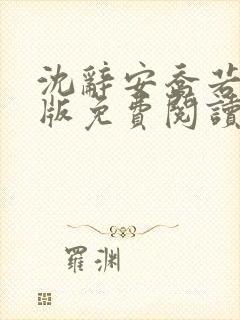 沈辭安喬若
版免費閱讀
羅渊